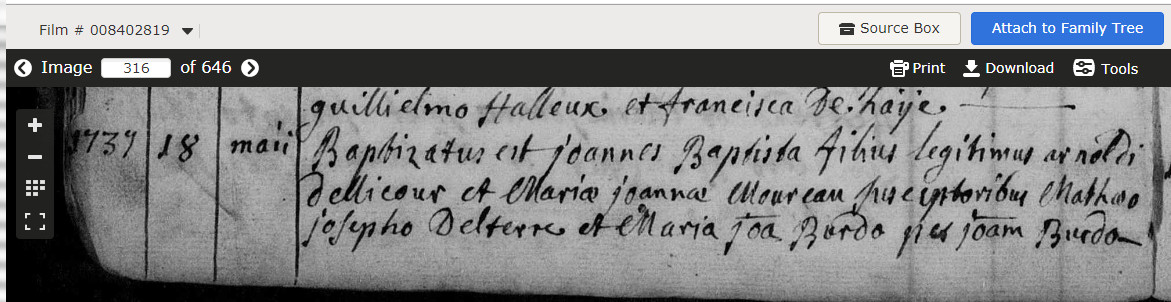 Film # 008402819
Source Box
Attach to Family Tree
Image 316 of 646
Print
Download
Tools
guillielmo Halleux et francisca De.haije.
1737 18 maii Baptizatus est joannes Baptista filius legitimus arnoldi
dellicour et Mariæ joannæ Moureau susceptoribus Mathæo
josepho Delterre et Maria joa Burdo per joam Burdo